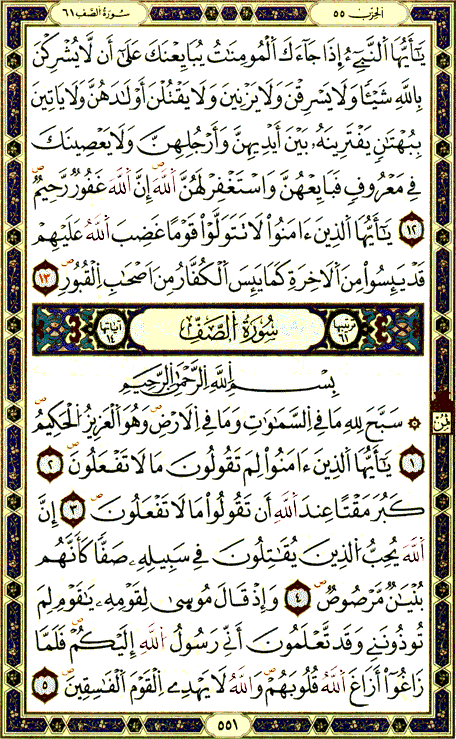 الحزب ٥٥
سورة الصف ٦١
يَٰٓأَيُّهَا اَ۬لنَّبِيٓءُ اِ۪ذَا جَآءَكَ اَ۬لْمُومِنَٰتُ يُبَايِعْنَكَ عَلَىٰٓ أَن لَّا يُشْرِكْنَ
بِاللَّهِ شَيْـٔاً وَلَا يَسْرِقْنَ وَلَا يَزْنِينَ وَلَا يَقْتُلْنَ أَوْلَٰدَهُنَّ وَلَا يَاتِينَ
بِبُهْتَٰنٍ يَفْتَرِينَهُۥ بَيْنَ أَيْدِيهِنَّ وَأَرْجُلِهِنَّ وَلَا يَعْصِينَكَ
فِے مَعْرُوفٍ فَبَايِعْهُنَّ وَاسْتَغْفِرْ لَهُنَّ اَ۬للَّهَ إِنَّ اَ۬للَّهَ غَفُورٌ رَّحِيمٌ
١٢ يَٰٓأَيُّهَا اَ۬لذِينَ ءَامَنُواْ لَا تَتَوَلَّوْاْ قَوْماً غَضِبَ اَ۬للَّهُ عَلَيْهِمْ
قَدْ يَئِسُواْ مِنَ اَ۬لَاخِرَةِ كَمَا يَئِسَ اَ۬لْكُفَّارُ مِنَ اَصْحَٰبِ اِ۬لْقُبُورِ ١٣
ترتيبها ٦١ سُورَةُ اُ۬لصَّفِّ آياتها ١٤
بِسْمِ اِ۬للَّهِ اِ۬لرَّحْمَٰنِ اِ۬لرَّحِيمِ
سَبَّحَ لِلهِ مَا فِے اِ۬لسَّمَٰوَٰتِ وَمَا فِے اِ۬لَارْضِ وَهُوَ اَ۬لْعَزِيزُ اُ۬لْحَكِيمُ
١ يَٰٓأَيُّهَا اَ۬لذِينَ ءَامَنُواْ لِمَ تَقُولُونَ مَا لَا تَفْعَلُونَ ٢
كَبُرَ مَقْتاً عِندَ اَ۬للَّهِ أَن تَقُولُواْ مَا لَا تَفْعَلُونَ ٣ إِنَّ
اَ۬للَّهَ يُحِبُّ اُ۬لذِينَ يُقَٰتِلُونَ فِے سَبِيلِهِۦ صَفّاً كَأَنَّهُم
بُنْيَٰنٌ مَّرْصُوصٌ ٤ وَإِذْ قَالَ مُوسَىٰ لِقَوْمِهِۦ يَٰقَوْمِ لِمَ
تُوذُونَنِے وَقَد تَّعْلَمُونَ أَنِّے رَسُولُ اُ۬للَّهِ إِلَيْكُمْ فَلَمَّا
زَاغُوٓاْ أَزَاغَ اَ۬للَّهُ قُلُوبَهُمْ وَاللَّهُ لَا يَهْدِے اِ۬لْقَوْمَ اَ۬لْفَٰسِقِينَ ٥
ثمن
٥٥١